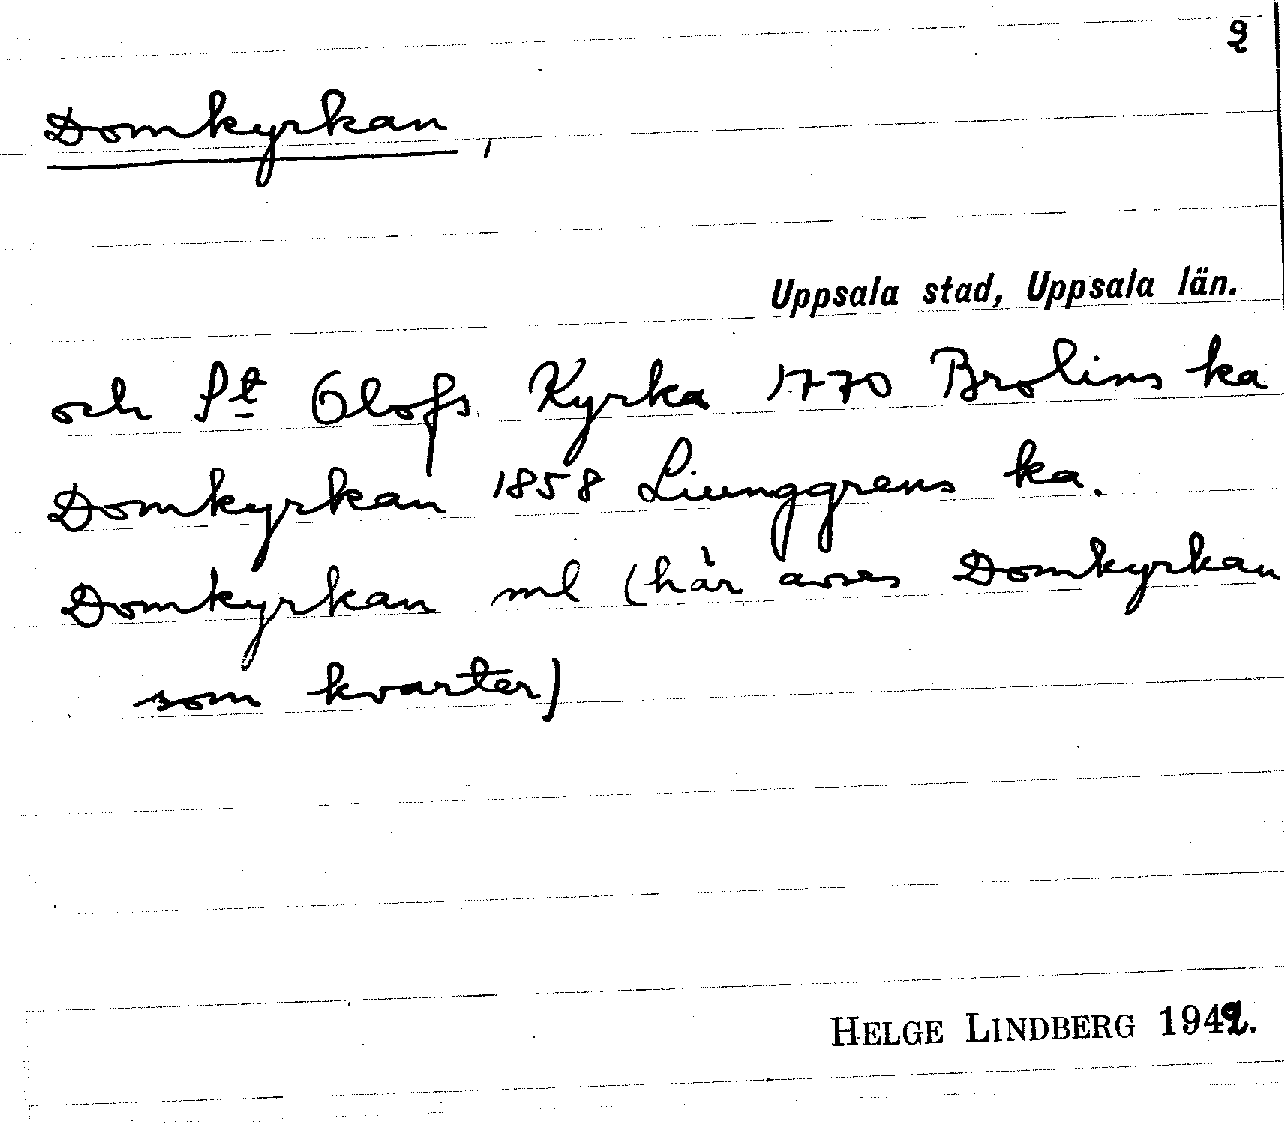 2
Domkyrkan,
Uppsala stad, Uppsala län.
och St Olofs Kyrka 1770 Brolins ka
Domkyrkan 1858 Liunggrens ka.
Domkyrkan ml (här avses Domkyrkan
som kvarter)
HELGE LINDBERG 1942.